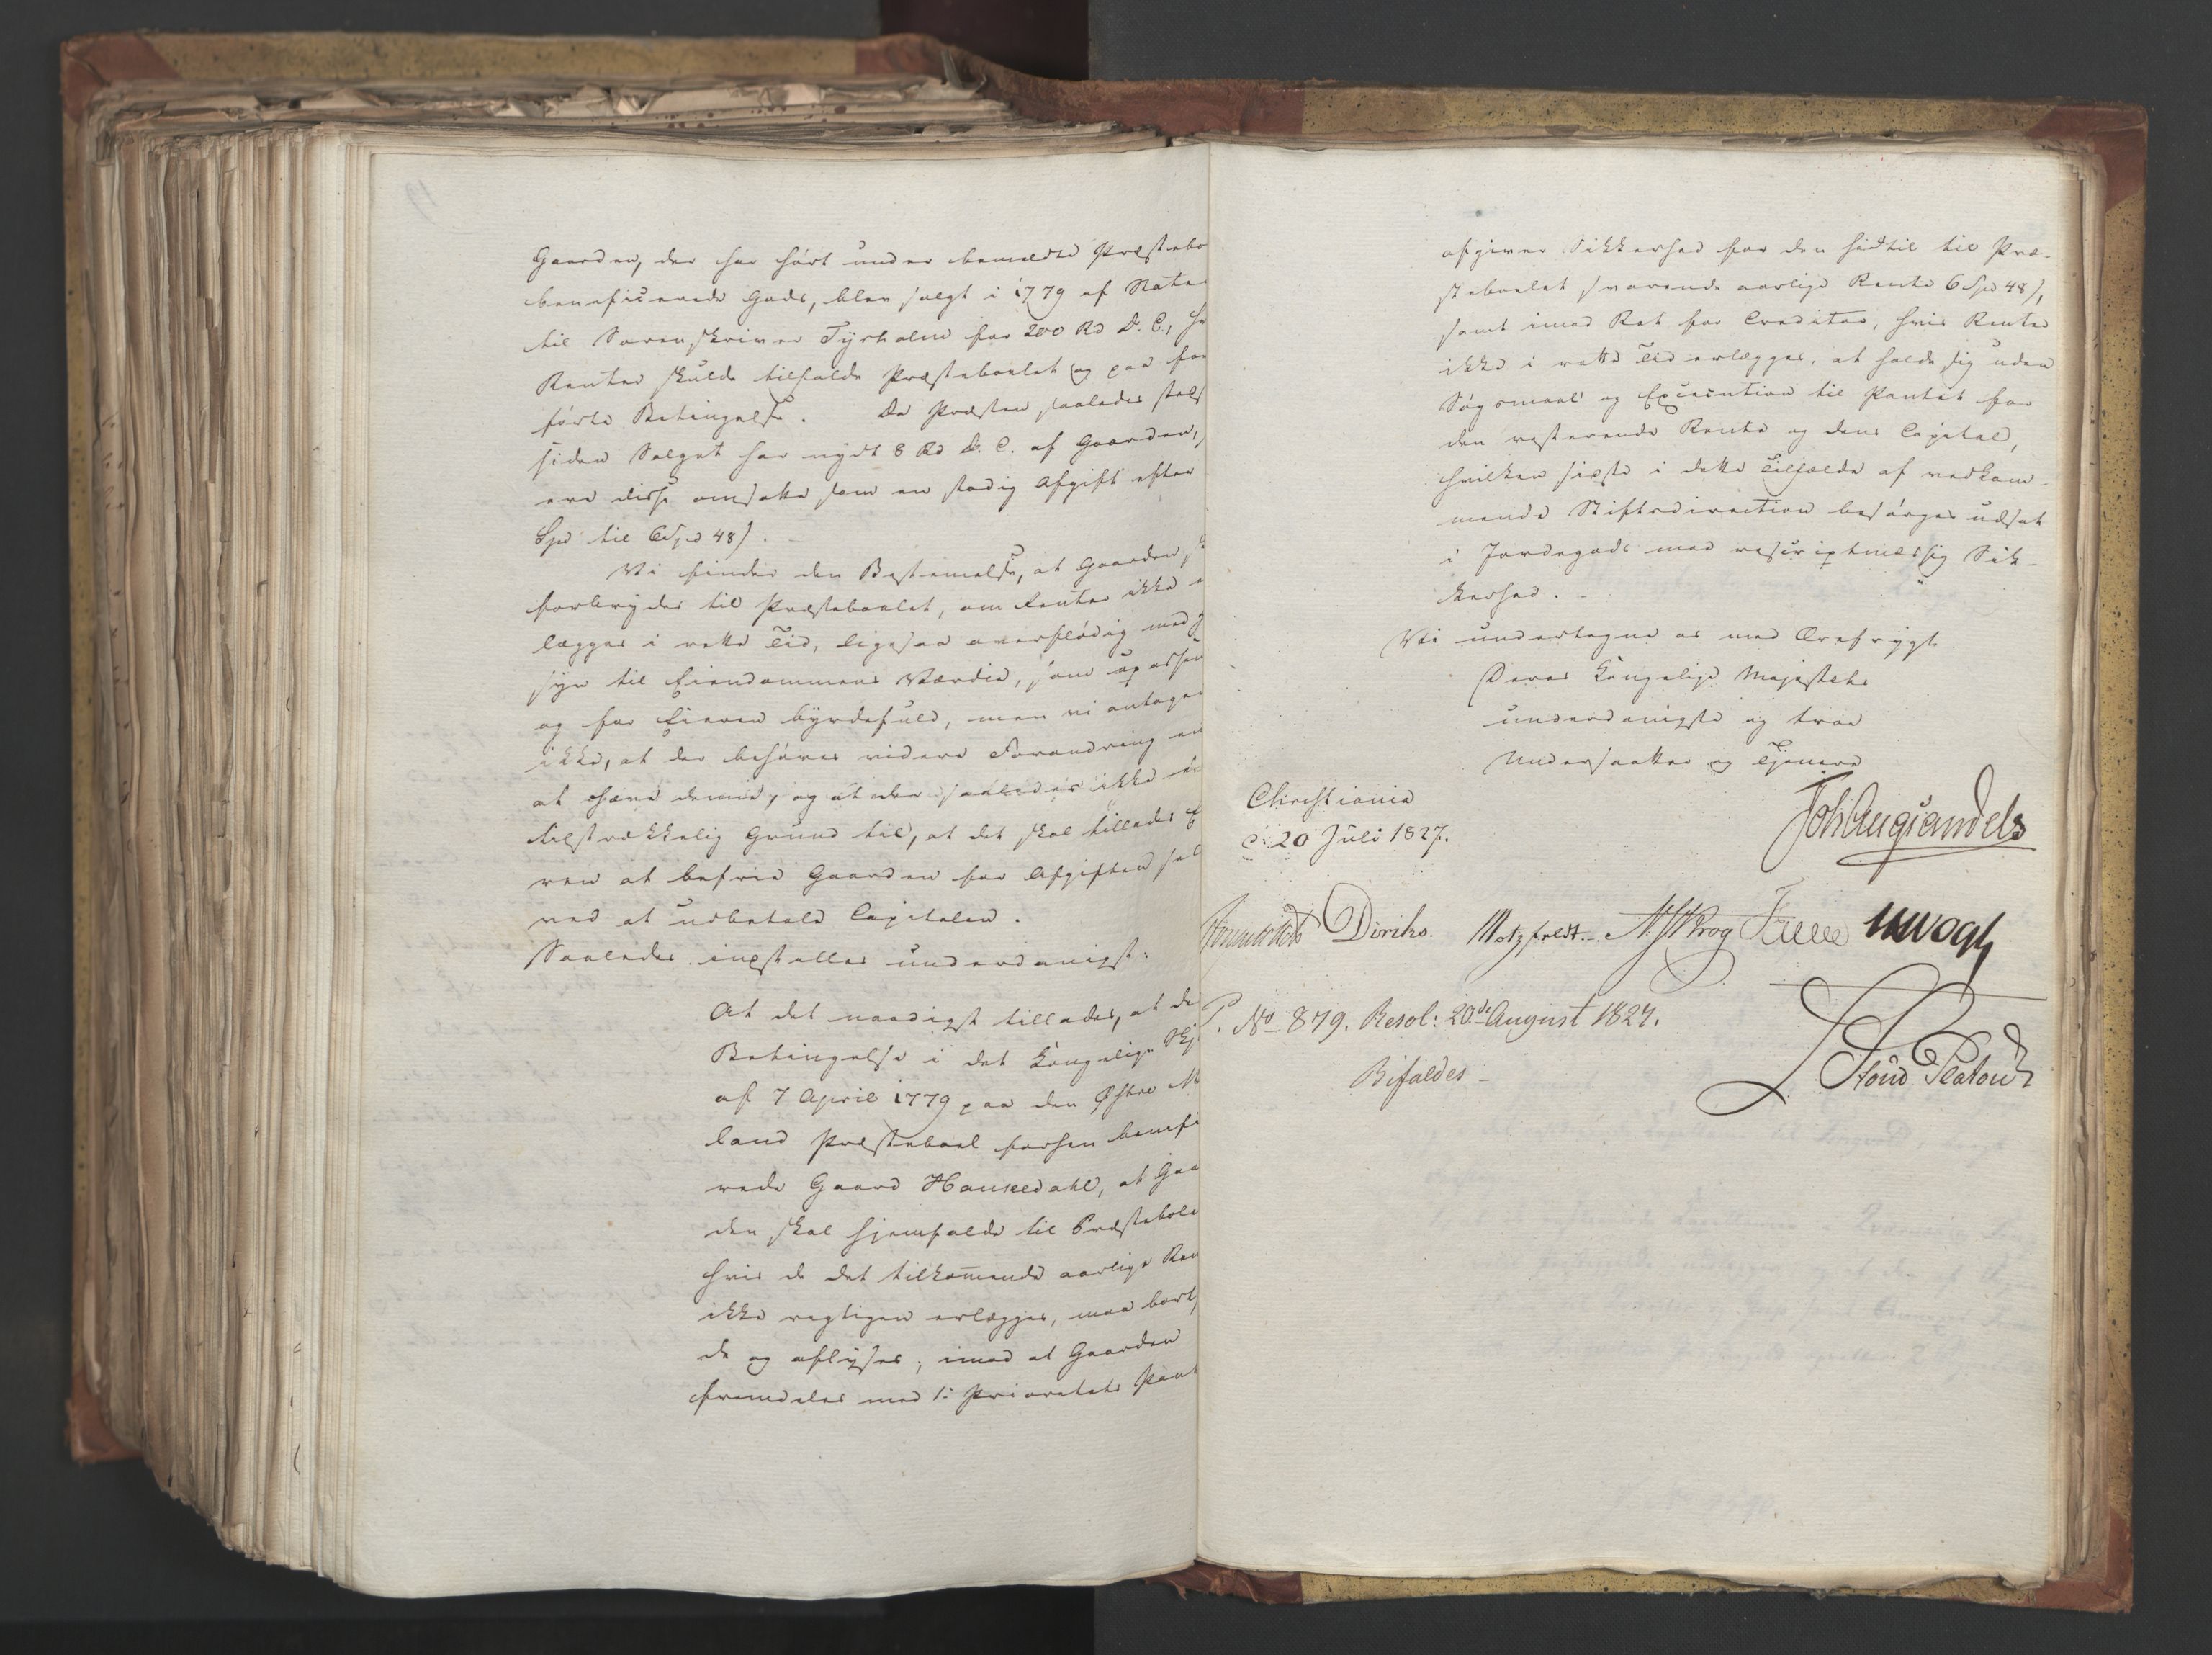 Gaarden, der har hört under bemeldte Præstebo
beneficerede Gods, blev solgt i 1779 af Staten
til Sorenskriver Tyrholm for 200 Rd D. C., hv
Renter skulde tilfalde Præstebolet og paa for
förte Betingelse. Da Præsten saaledes
siden Salget har nydt 8 Rd D. C. af Gaarden,
ere disse omsatte som en stadig Afgift efter
Spd til 6 Spd 48 s.
Vi finde den Bestemmelse, at Gaarden
forbrydes til Præstebolet, om Renter ikke e
lægges i rette Tid, ligesaa overflödig med
syn til Eiendommens Værdie, som upassen
og for Eieren byrdefuld, men vi antager
ikke, at der behöves videre Forandring en
at hæve denne, og at der saaledes ikke er
tilstrækkelig Grund til, at det skal tillades E
ren at befrie Gaarden for Afgiften
ved at udbetale Capitalen.
Saaledes indstilles underdanigst:
At det naadigst tillades, at de
Betingelse i det Kongelige Skj
af 7 April 1779 paa den Østre M
land Præstebol forhen benefi
rede Gaard Hauxedahl, at Gaa
den skal hjemfalde til Præstebole
hvis de det tilkommende aarlige Ren
ikke rigtigen erlægges, maa bort
de og aflyses; imod at Gaarden
fremdeles med 1: Prioritets Pant
afgiver Sikkerhed for den hidtil til Præ-
stebolet svarende aarlige Rente 6 Spd 48 s,
samt imod Ret for Creditor, hvis Renten
ikke i rette Tid erlægges, at holde sig uden
Søgsmaal og Execution til Pantet for
den resterende Rente og dens Capital,
hvilken sidste i dette Tilfælde af vedkom-
mende Stiftsdirection besörges udsat
i Jordegods med rescriptmæssig Sik-
kerhed.
Vi undertegne os med Ærefrygt
Deres Kongelige Majestets
underdanigste og troe
Undersaatter og Tjenere
Christiania
d: 20 Juli 1827.
Joh Aug Sandels
Diriks. Motzfeldt. Krog Fasting Vogt
P. No 879. Resol: 20de August 1827.
Bifaldes
Stoud Platou